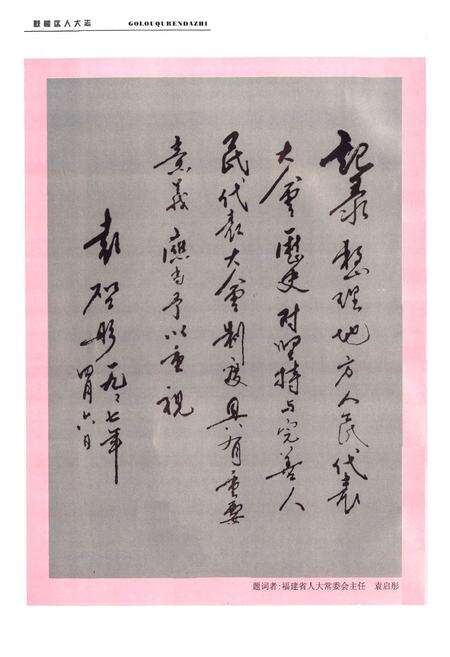 鼓楼区人大志
GOLOUQURENDAZHI
记录整理地方人民代表
大会历史对坚持与完善人
民代表大会制度具有重要
意义应当予以重视
袁启彤一九九七年
四月六日
题词者:福建省人大常委会主任 袁启彤